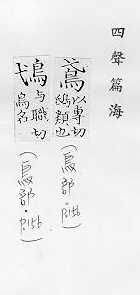 四聲篇海
鳶 以專切
鴟類也
(鳥部·P.156)
与職切
鳥名
(鳥部·P.156)